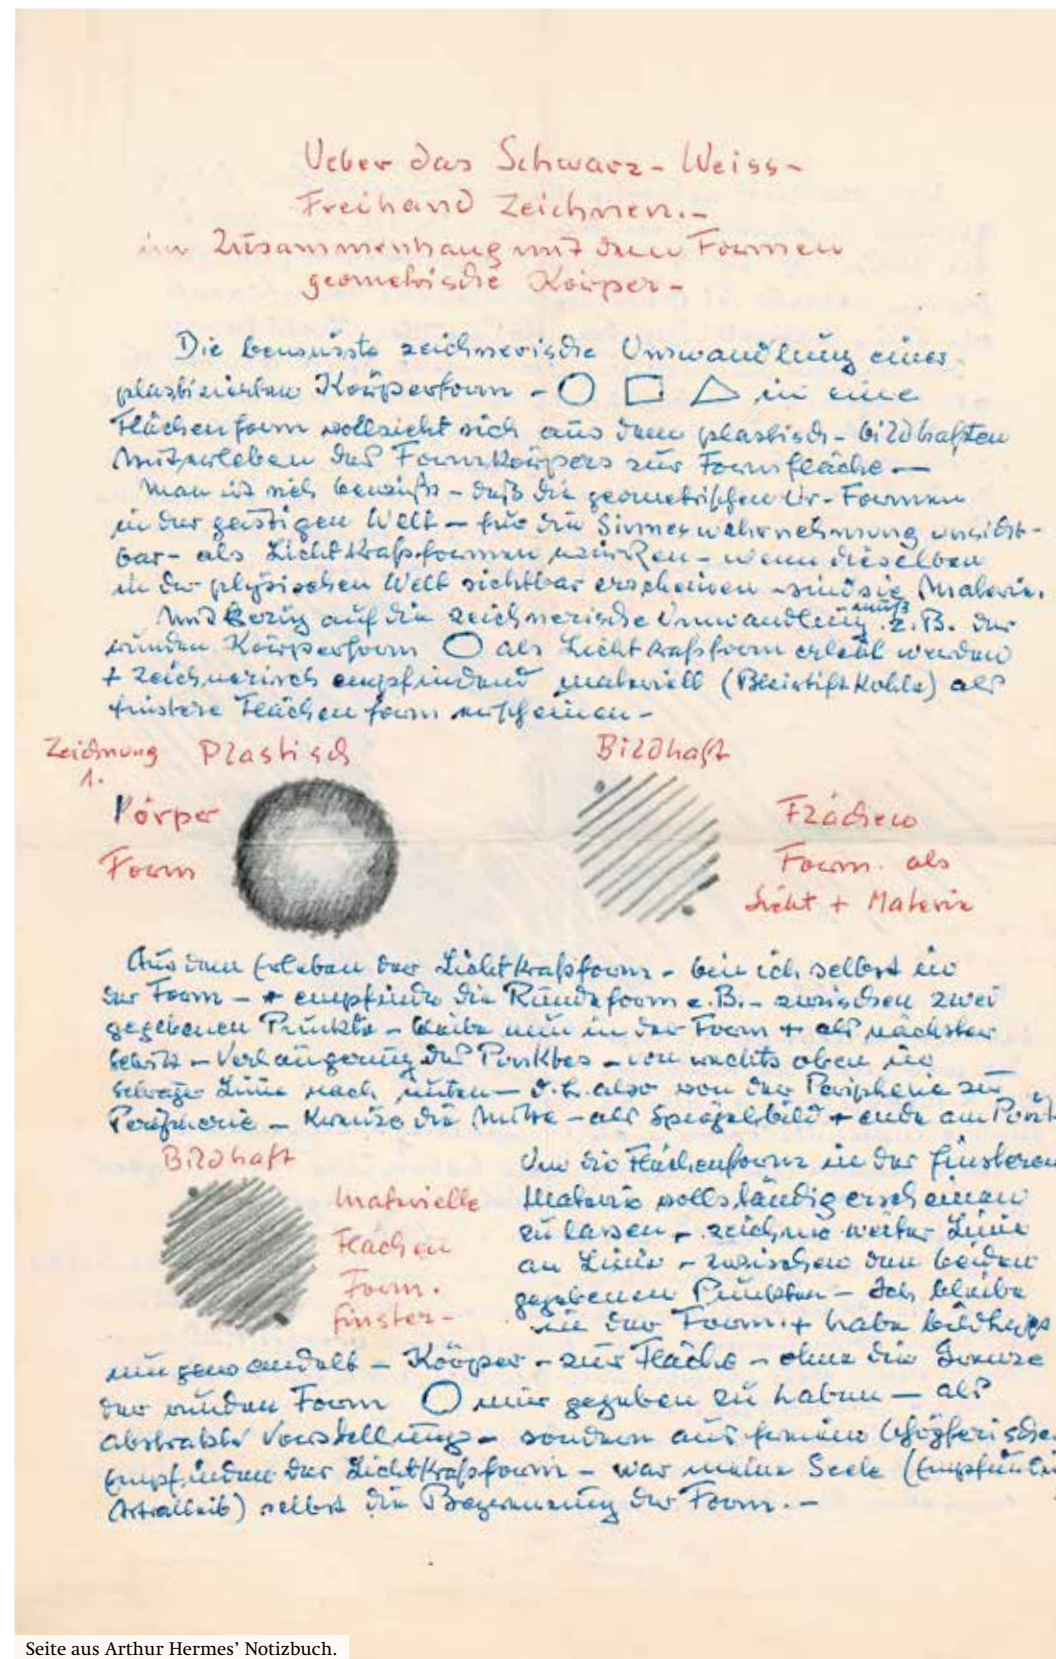 Ueber das Schwarz-Weiss-
Freihand Zeichnen.-
im Zusammenhang mit den Formen
geometrische Körper-
Die bewusste zeichnerische Umwandlung einer
plastizierten Körperform - ○ □ △ in eine
Flächenform vollzieht sich aus dem plastisch-bildhaften
Miterleben des Formkörpers zur Formfläche —
Man ist sich bewußt - daß die geometrischen Ur-Formen
in der geistigen Welt - für die Sinneswahrnehmung unsicht-
bar - als Lichtkraftformen wirken - wenn dieselben
in der physischen Welt sichtbar erscheinen - sind sie Materie.
Mit Bezug auf die zeichnerische Umwandlung muß z.B. der
runden Körperform ○ als Lichtkraftform erlebt werden
+ zeichnerisch empfindend materiell (Bleistift Kohle) als
finstere Flächenform erscheinen -
Zeichnung Plastisch Bildhaft
1.
Körper Flächen
Form Form als
Licht + Materie
Aus dem Erleben der Lichtkraftform - bin ich selbst in
der Form - + empfinde die Rundform z.B. - zwischen zwei
gegebenen Punkte - bleibe nun in der Form + als nächster
Verlängerung des Punktes - von rechts oben in
schräger Linie nach unten - d.h. also von der Peripherie zur
Peripherie - kreuze die Mitte - als Spiegelbild + ende am
Bildhaft Um die Flächenform in der finsteren
Materielle Materie vollständig erscheinen
Flächen zu lassen - zeichne weiter Linie
Form. an Linie - zwischen den beiden
finster- gegebenen Punkten - Ich bleibe
in der Form + habe
umgewandelt - Körper - zur Fläche - ohne die Grenze
der runden Form ○ mir gegeben zu haben — als
abstrakte Vorstellung - sondern aus
Empfinden der Lichtkraftform - war meine Seele
Astralleib) selbst die Begrenzung der Form. -
Seite aus Arthur Hermes’ Notizbuch.